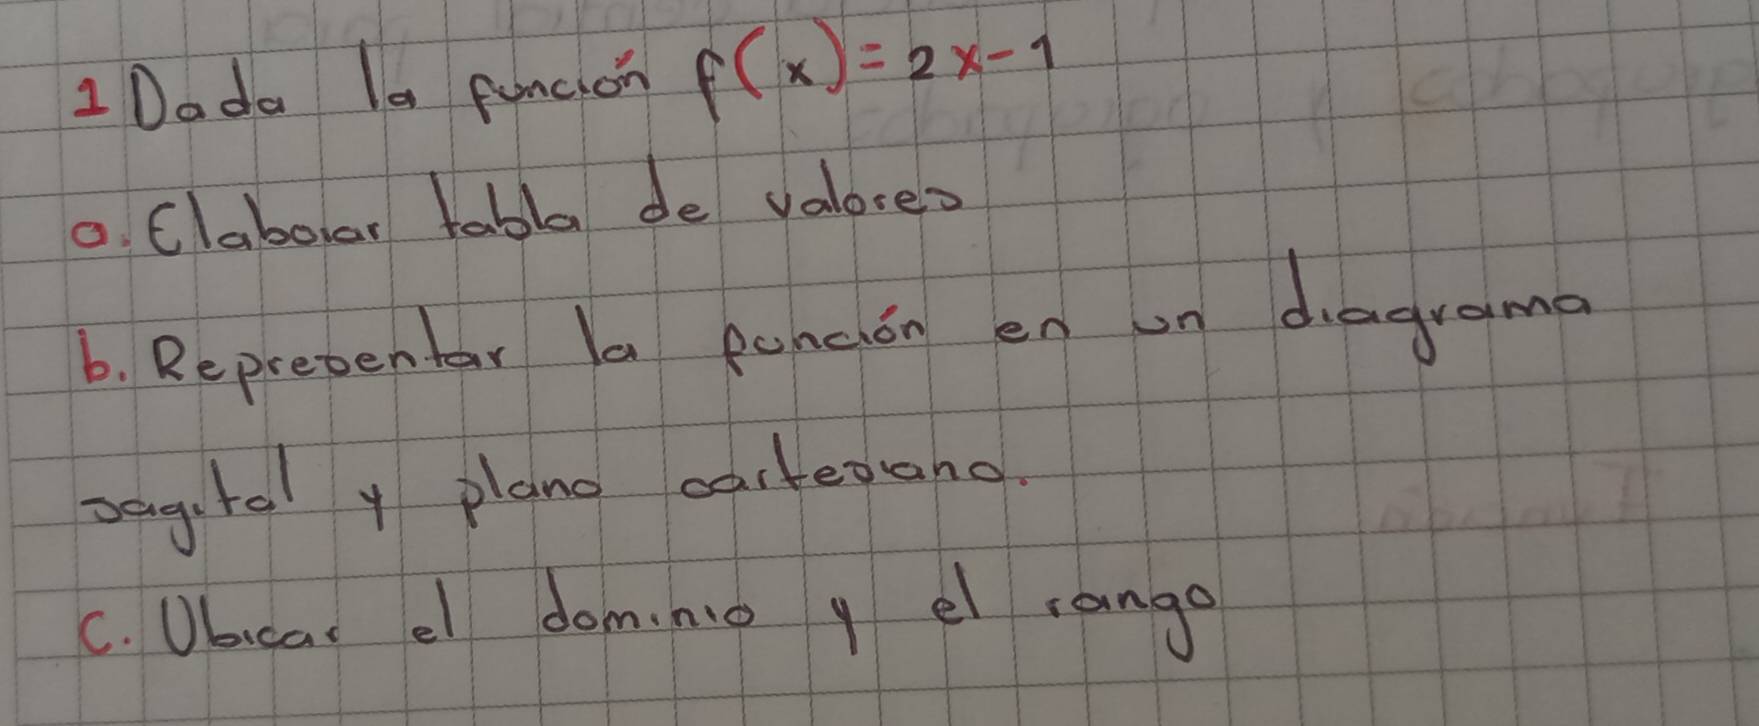 1 Dada la función f(x)=2x-1
a. Elaborar tabla de valores
b. Representar la función en un diagrama
sagital y plano cartesiano.
C. Ubicar el dominio y el rango